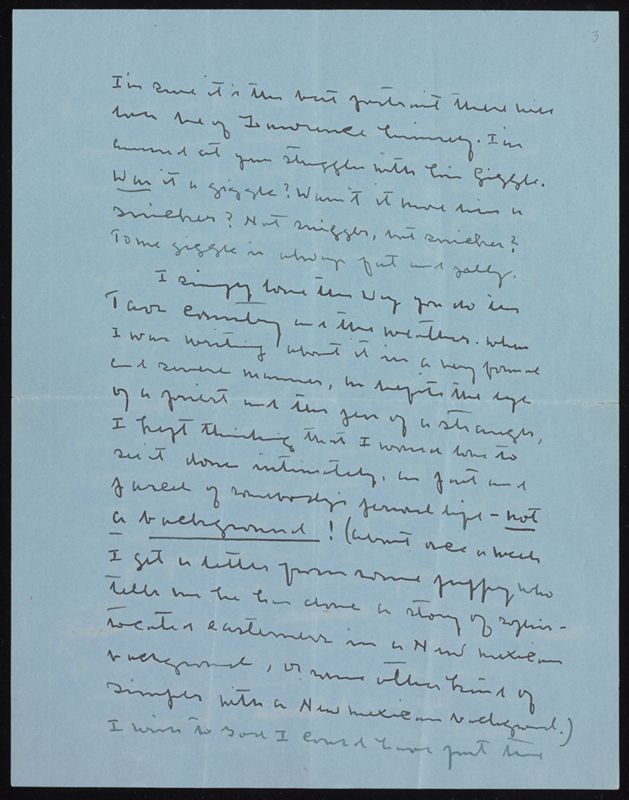 3
I'm sure it's the best portrait there will
ever be of Lawrence himself. I'm
amused at your struggles with his giggle.
Was it a giggle? Wasn't it more like a
snicker? Not snigger, but snicker?
To me giggle is always fat and jolly.
I simply love the way you do the
Taos country and the weather. When
I was writing about it in a very formal
and severe manner, as befits the eye
of a priest and the pen of a stranger,
I kept thinking that I would love to
see it done intimately, as part and
parcel of somebody's personal life - not
a background! (About once a week
I get a letter from some puppy who
tells me he has done a story of sophis-
ticated easterners in a New Mexican
background, or some other kind of
simper with a New Mexican background.)
I wish to God I could have put the